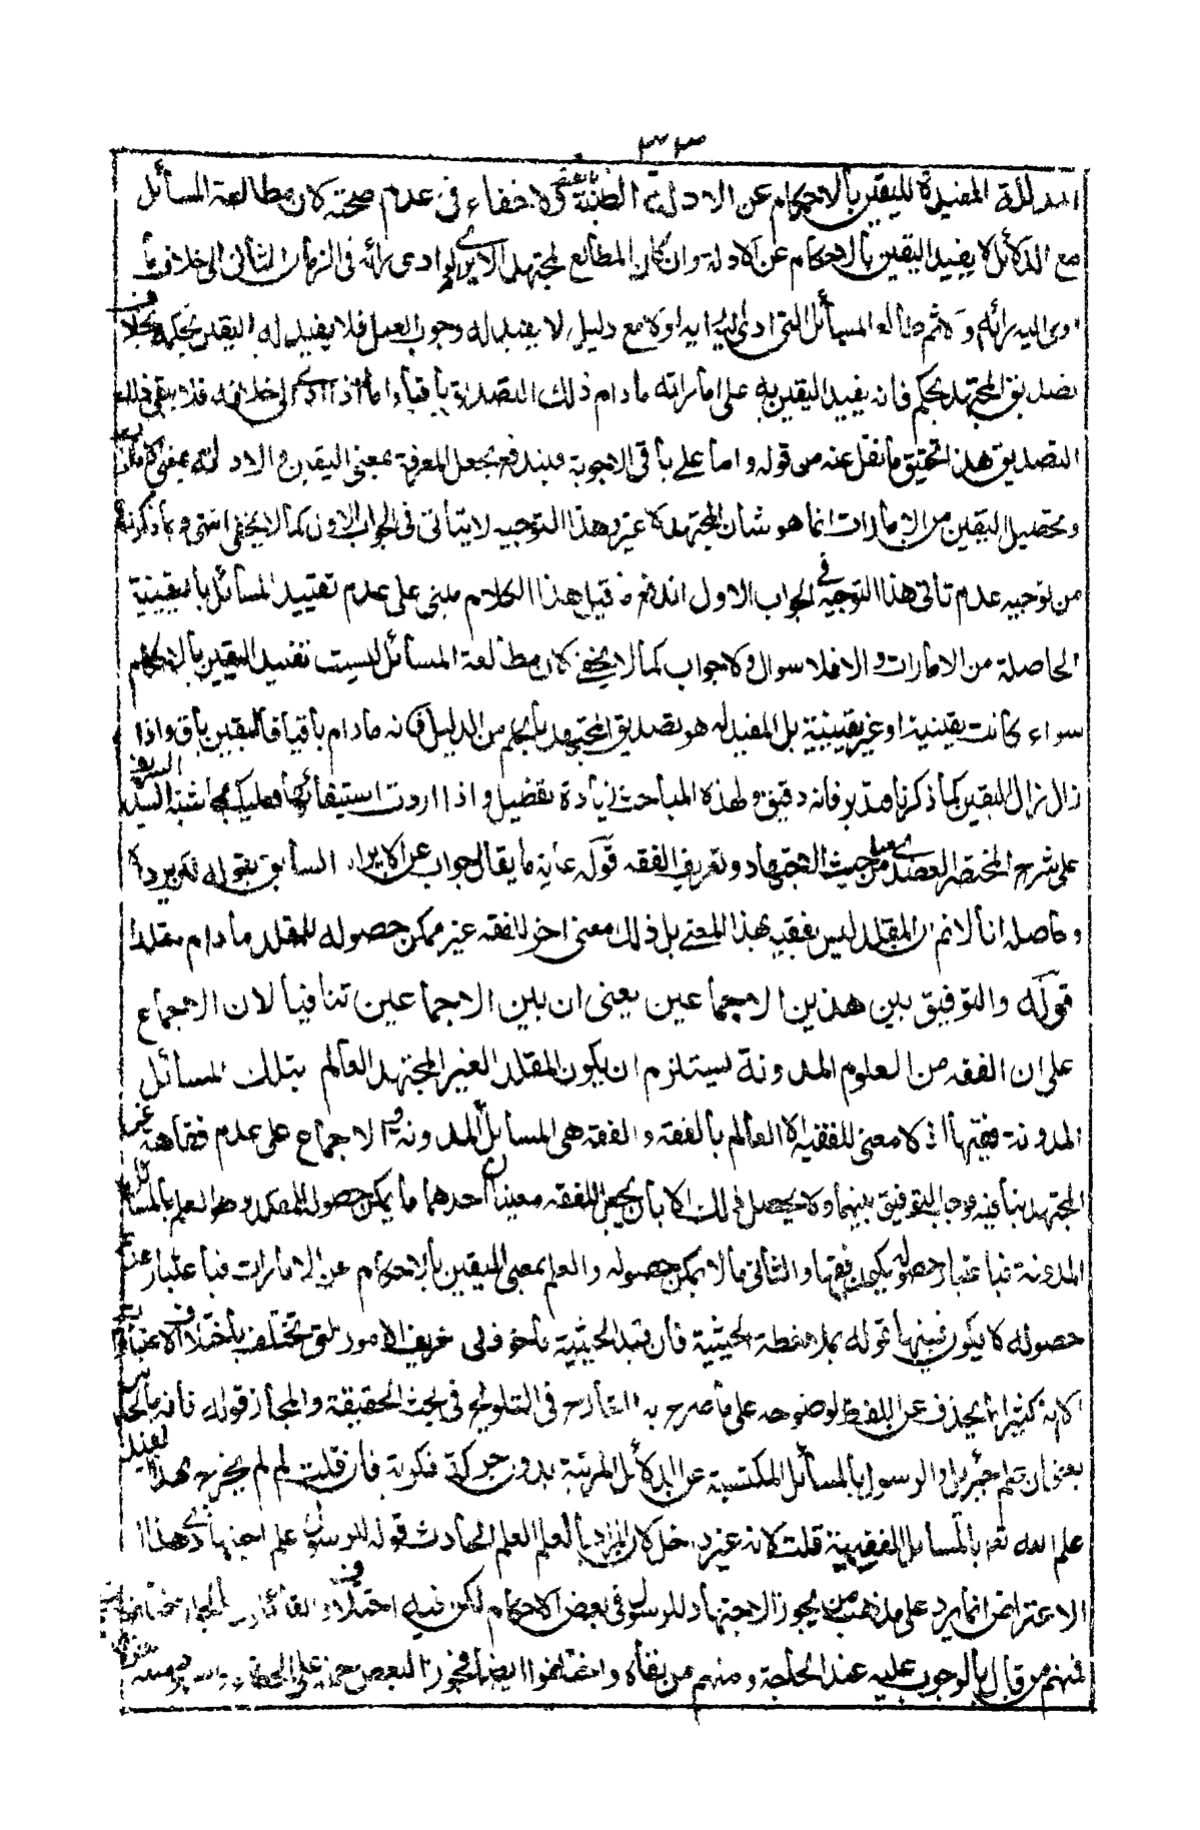 ٣٣
المدللة المفيدة لليقين بالاحكام عن الادلة الظنية ولا خفاء في عدم صحته لان مطالعة المسائل
مع الدلائل لا يفيد اليقين بالاحكام عن الادلة وان كان المطالع لمجتهد الا يرى لو ادى رائه في الزمان الثاني الى خلاف ما
ادى اليه رائه اولا ثم طالع المسائل التي ادى اليه رايه اولا مع دليل لا يفيد له وجوب العمل فلا يفيد له اليقين بحكمه بخلاف
تصديق المجتهد بحكم فانه يفيد اليقين به على اماراته ما دام ذلك التصديق باقيا واما اذا ادى الى خلافه فلا يبقى ذلك
التصديق هذا تحقيق ما نقل عنه من قوله واما على باقي الاجوبة فيندفع بجعل المعرفة بمعنى اليقين والادلة بمعنى الامارات
وتحصيل اليقين من الامارات انما هو شان المجتهد لا غير وهذا التوجيه لا يتاتى في الجواب الاول كما لا يخفى انتهى وبما ذكرنا
من توجيه عدم تاتي هذا التوجيه في الجواب الاول اندفع ما قيل هذا الكلام مبني على عدم تقييد المسائل باليقينية
الحاصلة من الامارات والا فلا سوال ولا جواب كما لا يخفى لان مطالعة المسائل ليست تفيد اليقين بالاحكام
سواء كانت يقينية او غير يقينية بل المفيد له هو تصديق المجتهد بالحكم من الدليل فانه ما دام باقيا فاليقين باق واذا
زال زال اليقين كما ذكرنا فتدبر فانه دقيق ولهذه المباحث زيادة تفصيل واذا اردت استيفائها فعليك بحاشية السيد الشريف
على شرح المختصر العضدي من حيث الاجتهاد وتعريف الفقه قوله غاية ما يقال جواب عن الايراد السابق بقوله ثم يرد
وحاصله انا لا نم ان المقلد ليس بفقيه بهذا المعنى بل ذلك معنى اخر للفقه غير ممكن حصوله للمقلد ما دام مقلدا
قوله والتوفيق بين هذين الاجماعين يعني ان بين الاجماعين تنافيا لان الاجماع
على ان الفقه من العلوم المدونة يستلزم ان يكون المقلد الغير المجتهد العالم بتلك المسائل
المدونة فقيها اذ لا معنى للفقيه الا العالم بالفقه والفقه هي المسائل المدونة والاجماع على عدم فقاهة غير
المجتهد ينافيه فوجب التوفيق بينهما ولا يحصل ذلك الا بان يجعل للفقه معنيان احدهما ما يمكن حصوله للمقلد وهو العلم بالمسائل
المدونة فباعتبار حصوله يكون فقيها والثاني ما لا يمكن حصوله والعلم بمعنى اليقين بالاحكام عن الامارات فباعتبار عدم
حصوله لا يكون فقيها قوله بملاحظة الحيثية فان قيد الحيثية ماخوذ في تعريف الامور التي تختلف باختلاف الاعتبار
الا انه كثيرا ما يحذف عن اللفظ لوضوحه على ما صرح به الشارح في التلويح في بحث الحقيقة والمجاز قوله فانه بالحدس
يعني ان علم جبريل والرسول بالمسائل المكتسبة عن الدلائل المرتبة بدون حركة فكرية فان قلت لم لم يخرج بهذا القيد
علم الله تعم بالمسائل الفقهية قلت لانه غير داخل لان المراد بالعلم العلم الحادث قوله للرسول علم اجتهادي هذا
الاعتراض انما يرد على مذهب من يجوز الاجتهاد للرسول في بعض الاحكام لكن فيه اختلاف
فمنهم من قال بالوجوب عليه عند الحاجة ومنهم من نفاه واختلفوا ايضا فجوز البعض